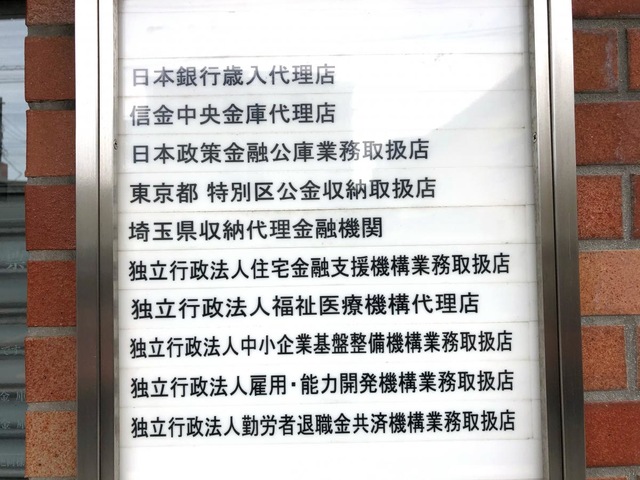 日本銀行歳入代理店
信金中央金庫代理店
日本政策金融公庫業務取扱店
東京都 特別区公金収納取扱店
埼玉県収納代理金融機関
独立行政法人住宅金融支援機構業務取扱店
独立行政法人福祉医療機構代理店
独立行政法人中小企業基盤整備機構業務取扱店
独立行政法人雇用・能力開発機構業務取扱店
独立行政法人勤労者退職金共済機構業務取扱店